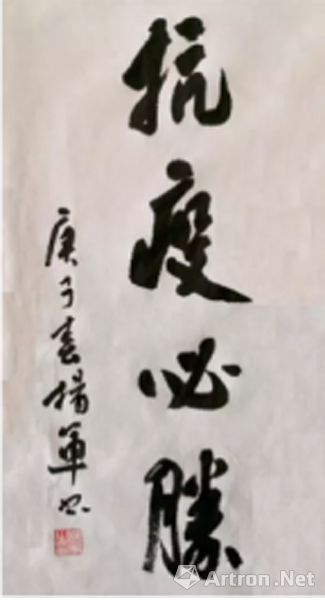 抗疫必勝
庚子春楊軍书
Artron.Net